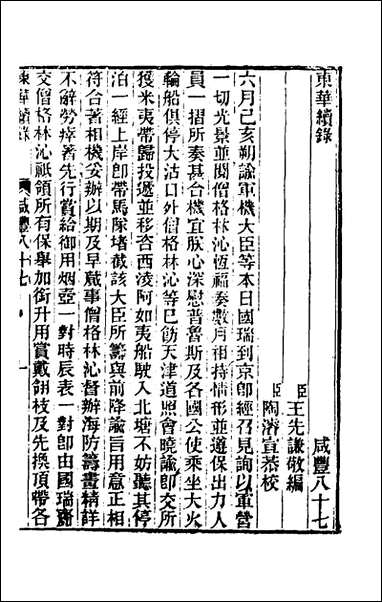 東華續錄 咸豐八十七
臣王先謙敬編
臣陶濬宣恭校
六月己亥朔諭軍機大臣等本日國瑞到京卽經召見詢以軍營
一切光景並閱僧格林沁恆福奏數月相持情形並遵保出力人
員一摺所奏甚合機宜朕心深慰普魯斯及各國公使乘坐大火
輪船俱停大沽口外僧格林沁等已飭天津道照會曉諭卽交所
獲米夷帶歸投遞並移咨西淩阿如夷船駛入北塘不妨聽其停
泊一經上岸卽帶馬隊堵截該大臣所籌與前降諭旨用意正相
符合著相機妥辦以期及早蕆事僧格林沁督辦海防籌畫精詳
不辭勞瘁著先行賞給御用烟壺一對時辰表一對卽由國瑞齎
交僧格林沁祇領所有保舉加銜升用賞戴翎枝及先換頂帶各
東華續錄 咸豐八十七 一